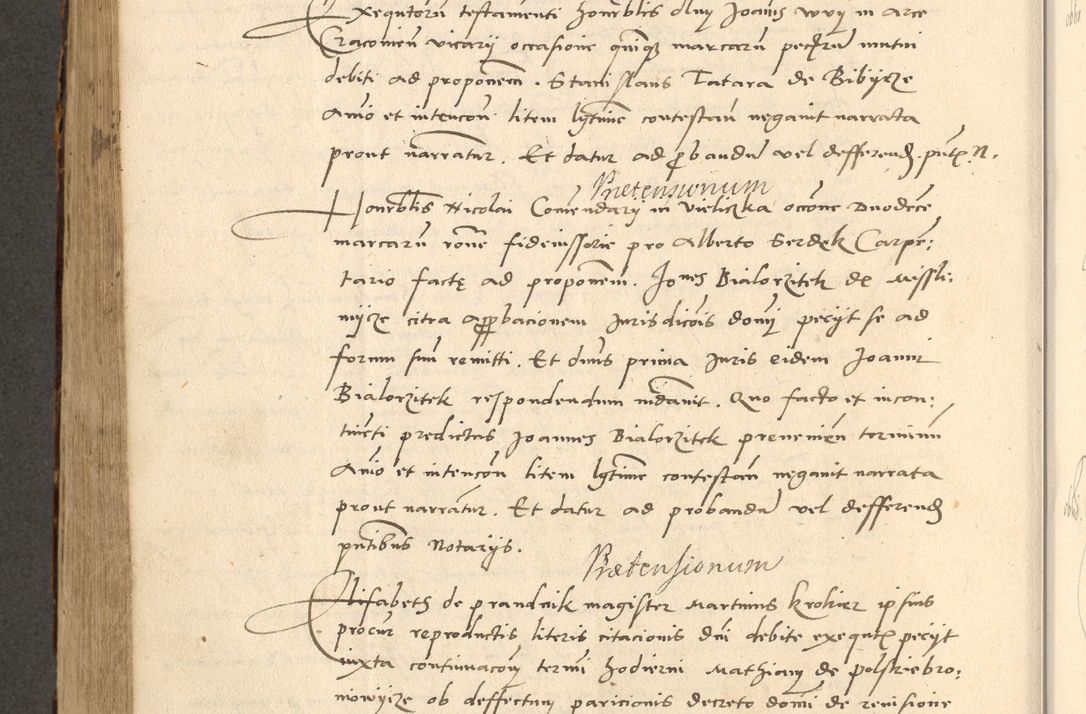 Exequtorum testamenti honorblis olim Joanis wuy in arce
Cracovien vicarij occasione quinque marcarum pecuniarum mutui
debiti ad proponen. Stanislaus Tatara de Bibycze
Animo et intencon litem lgtime contestan negavit narrata
prout narratur. Et datur ad probandum vel defferend. pntz. N.
Pretensionum
Honorblis Nicolai Comendarij in Vieliczka occone Duodece
marcarum rone fideiussorie pro Alberto Serdek Carpe:
tario facte ad proponem. Jones Bialorzitek de Missle:
nycze citra approbacionem Jurisdicois domj pecijt se ad
forum suum remitti. Et dnus prima Juris eidem Joanni
Bialorzitek respondendum mdavit. Quo facto et incon:
tinenti predictus Joannes Bialorzitek prevenien terminum
Animo et intencon litem lgtime contestan negavit narrata
prout narratur. Et datur ad probandum vel defferend
pntibus Notarijs.
Pretensionum
Elisabeth de prandnik magister Martinus krokier ipsius
procur reproductis literis citacionis dni debite exequtz pecijt
iuxta continuacom termi hodierni Mathiam de polskiebro:
nowycze ob deffectum paricionis decreto domi de remissione